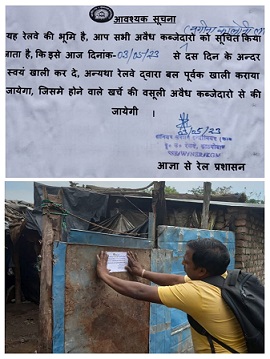 आवश्यक सूचना
यह रेलवे की भूमि है, आप सभी अवैध कब्जेदारो को सूचित किया
जाता है, कि इसे आज दिनांक-03/05/23 से दस दिन के अन्दर
स्वयं खाली कर दे, अन्यथा रेलवे द्वारा बल पूर्वक खाली कराया
जायेगा, जिसमे होने वाले खर्चे की वसूली अवैध कब्जेदारो से की
जायेगी ।
03/05/23
आज्ञा से रेल प्रशासन